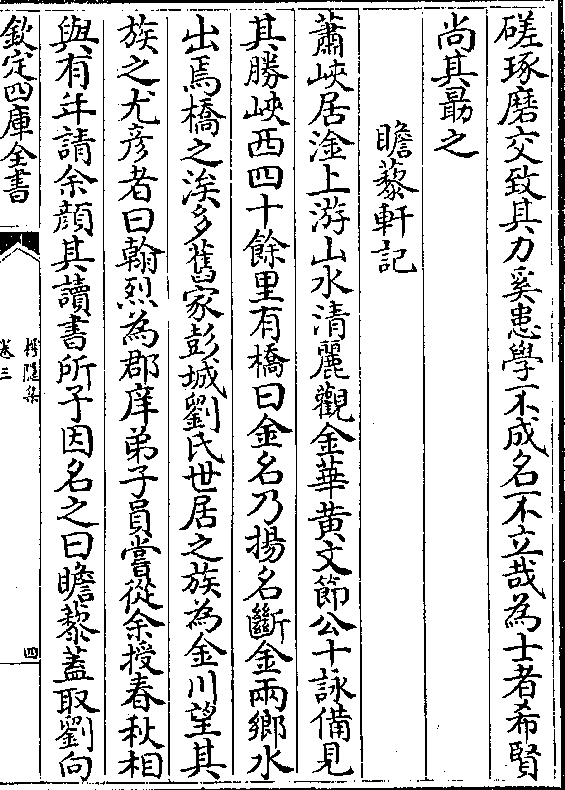 磋琢磨交致其力奚患學不成名不立哉為士者希賢
尚其勗之
瞻藜軒記
蕭峽居淦上游山水清麗觀金華黄文節公十詠備見
其勝峽西四十餘里有橋曰金名乃揚名斷金兩鄉水
出焉橋之涘多舊家彭城劉氏世居之族為金川望其
族之尤彦者曰翰烈為郡庠弟子員嘗從余授春秋相
與有年請余顔其讀書所予因名之曰瞻藜蓋取劉向
欽定四庫全書
卷三
四